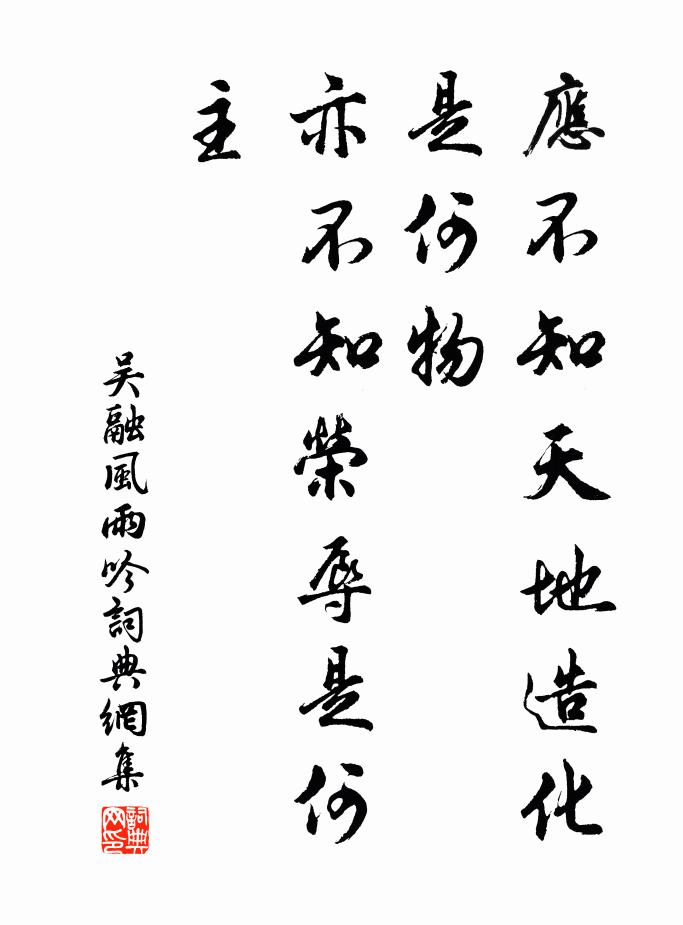 應不知天地造化
是何物
亦不知榮辱是何
主
吳融風雨吟詞典網集
詞典
网印